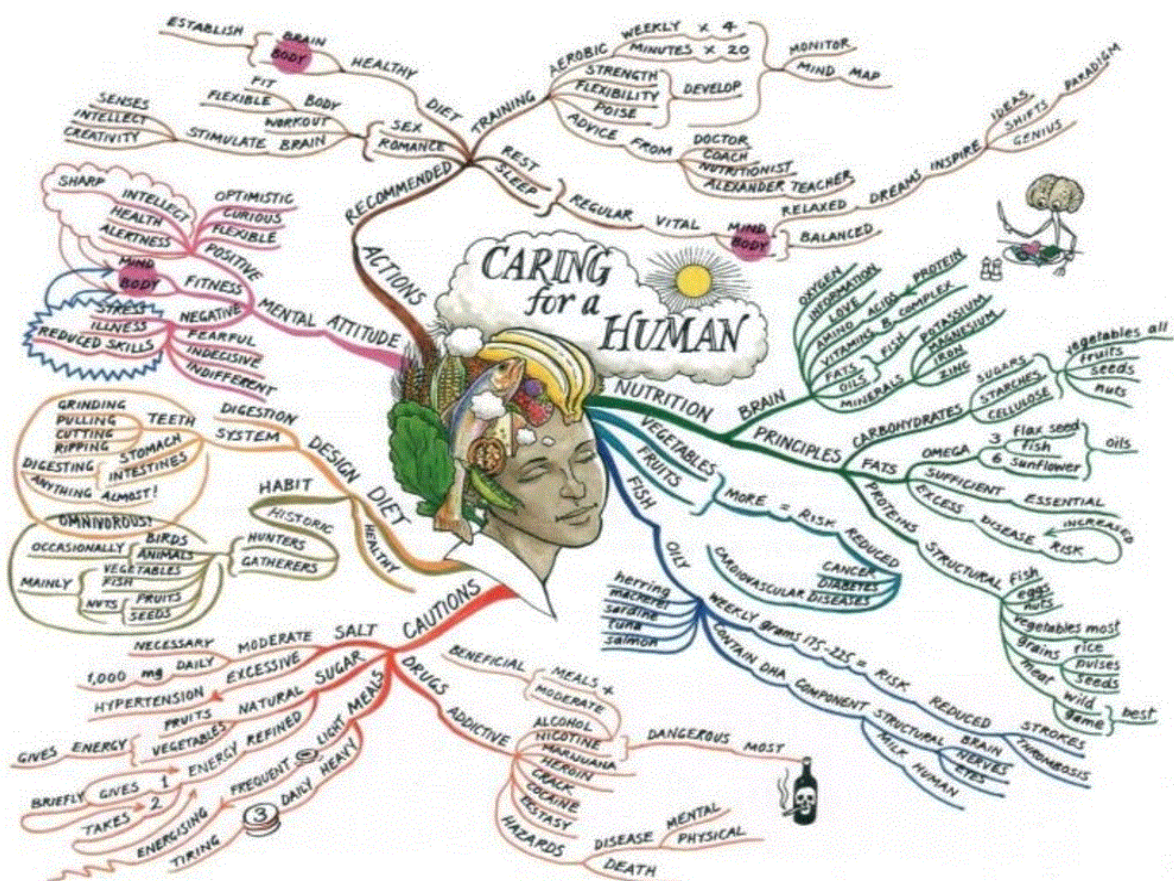 CARING
for a
HUMAN
ACTIONS
RECOMMENDED
DIET
HEALTHY
BRAIN
BODY
ESTABLISH
TRAINING
AEROBIC
WEEKLY X 4
MINUTES X 20
STRENGTH
FLEXIBILITY
POISE
DEVELOP
MONITOR
MIND MAP
ADVICE FROM
DOCTOR
COACH
NUTRITIONIST
ALEXANDER TEACHER
SEX
ROMANCE
WORKOUT
BODY
FIT
FLEXIBLE
STIMULATE BRAIN
SENSES
INTELLECT
CREATIVITY
REST
SLEEP
REGULAR VITAL
MIND
BODY
RELAXED
BALANCED
DREAMS INSPIRE
IDEAS
SHIFTS PARADIGM
GENIUS
MENTAL ATTITUDE
POSITIVE
OPTIMISTIC
CURIOUS
FLEXIBLE
SHARP INTELLECT
HEALTH
ALERTNESS
FITNESS
MIND
BODY
NEGATIVE
STRESS
ILLNESS
REDUCED SKILLS
FEARFUL
INDECISIVE
INDIFFERENT
DIET
DESIGN
DIGESTION
SYSTEM
TEETH
GRINDING
PULLING
CUTTING
RIPPING
STOMACH
INTESTINES
DIGESTING
ANYTHING ALMOST!
HEALTHY
HISTORIC
HABIT
HUNTERS
GATHERERS
OMNIVOROUS!
OCCASIONALLY
BIRDS
ANIMALS
MAINLY
VEGETABLES
FISH
NUTS
FRUITS
SEEDS
CAUTIONS
SALT
MODERATE
NECESSARY
DAILY
1,000 mg
EXCESSIVE
HYPERTENSION
SUGAR
NATURAL
FRUITS
VEGETABLES
GIVES ENERGY
REFINED
ENERGY
GIVES 1
BRIEFLY
TAKES 2
MEALS
LIGHT
FREQUENT
ENERGISING
HEAVY
DAILY
3
TIRING
DRUGS
ADDICTIVE
BENEFICIAL
MEALS +
MODERATE
ALCOHOL
NICOTINE
MARIJUANA
HEROIN
CRACK
COCAINE
ECSTASY
DANGEROUS MOST
HAZARDS
DISEASE
MENTAL
PHYSICAL
DEATH
NUTRITION
BRAIN
OXYGEN
INFORMATION
LOVE
AMINO ACIDS PROTEIN
VITAMINS B COMPLEX
FATS
OILS
FISH
MINERALS
POTASSIUM
MAGNESIUM
IRON
ZINC
PRINCIPLES
CARBOHYDRATES
SUGARS
STARCHES
CELLULOSE
vegetables all
fruits
seeds
nuts
FATS
OMEGA
3
flax seed
fish
6 sunflower
oils
SUFFICIENT ESSENTIAL
EXCESS DISEASE RISK
INCREASED
PROTEINS
STRUCTURAL
fish
eggs
nuts
vegetables most
grains
rice
pulses
seeds
meat
wild
game
best
VEGETABLES
FRUITS
MORE = RISK REDUCED
CANCER
DIABETES
CARDIOVASCULAR DISEASES
FISH
OILY
herring
mackerel
sardine
tuna
salmon
WEEKLY grams 175-225 = RISK REDUCED
STROKES
THROMBOSIS
CONTAIN DHA COMPONENT STRUCTURAL
BRAIN
NERVES
EYES
MILK HUMAN